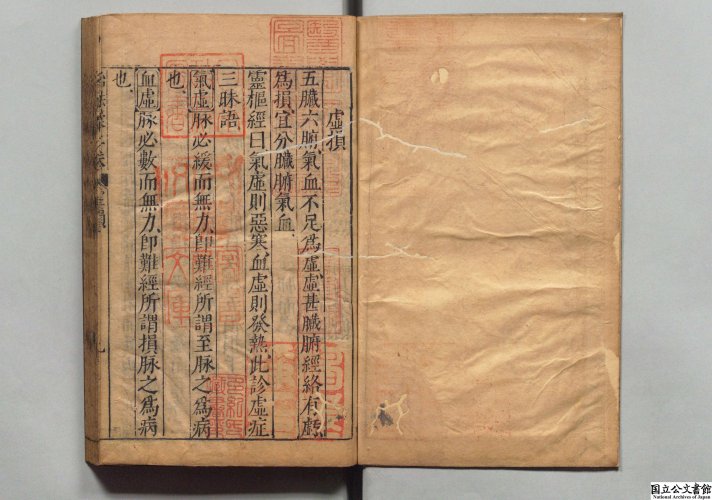 虛損
五臟六腑氣血不足爲虛虛甚臟腑經絡有虧
爲損宜分臟腑氣血
靈樞經曰氣虛則惡寒血虛則發熱此診虛症
三昧語
氣虛脉必緩而無力卽難經所謂至脉之爲病
也
血虛脉必數而無力卽難經所謂損脉之爲病
也
九
国立公文書館
National Archives of Japan